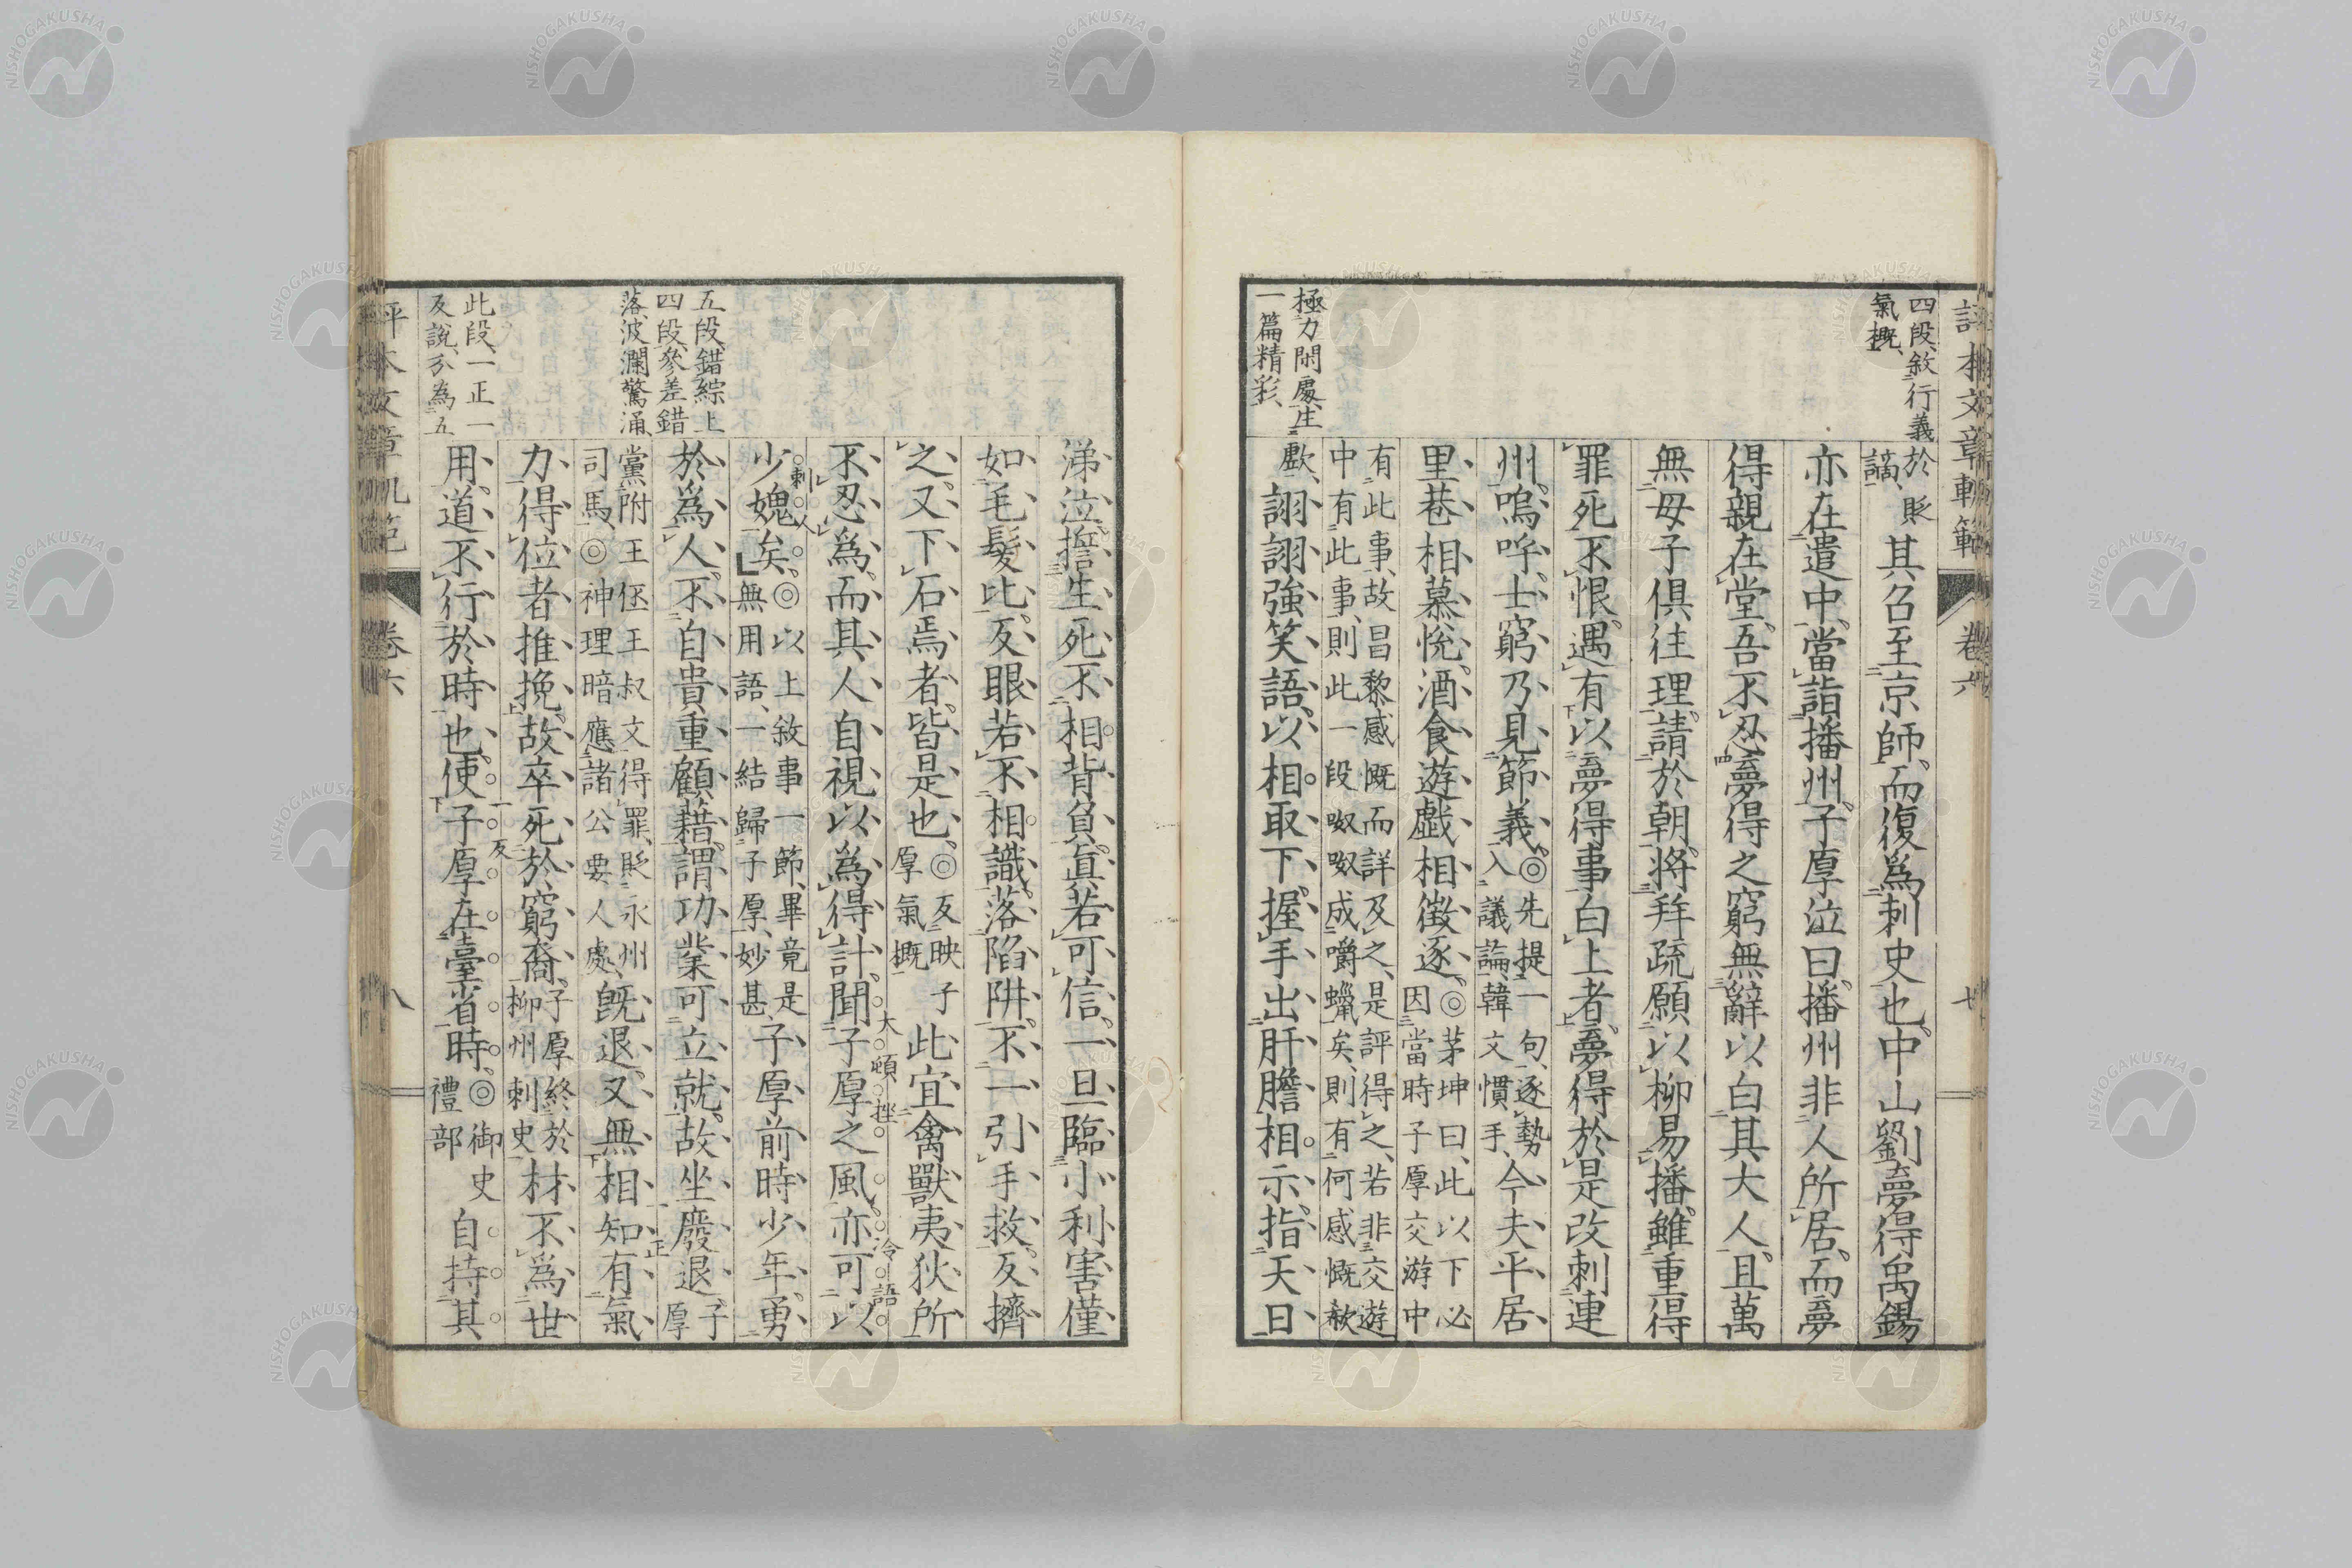 評本文章軌範
卷六
七
四段、敘行義
氣概、
於貶
謫、
其召至京師、而復爲刺史也、中山劉夢得禹錫
亦在遣中、當詣播州、子厚泣曰、播州非人所居、而夢
得親在堂、吾不忍夢得之窮、無辭以白其大人、且萬
無母子俱往理、請於朝、將拜疏、願以柳易播、雖重得
罪死不恨、遇有以夢得事白上者、夢得於是改刺連
州、嗚呼、士窮乃見節義、
◎先提一句、逐勢
入議論、韓文慣手、
今夫平居、
里巷相慕悅、酒食遊戲相徵逐、
◎茅坤曰、此以下必
因當時子厚交游中
有此事、故昌黎感慨而詳及之、是評得之、若非交遊
中有此事、則此一段呶呶成嚼蠟矣、則有何感慨欷
歔、
詡詡強笑語、以相取下、握手出肝膽相示、指天日、
極力閙處、生
一篇精彩、
涕泣誓生死不相背負、眞若可信、一旦臨小利害僅
如毛髮比、反眼若不相識、落陷阱、不一引手救、反擠
之、又下石焉者、皆是也、
◎反映子
厚氣概
此宜禽獸夷狄所
不忍爲、而其人自視以爲得計、聞子厚之風、亦可以
大頓挫
冷語
少媿矣、
刺人
◎以上敘事一節、畢竟是
無用語、一結歸子厚、妙甚、
子厚前時少年、勇
於爲人、不自貴重顧藉、謂功業可立就、故坐廢退、
正
子
厚
黨附王伾王叔文得罪、貶永州
司馬、◎神理暗應諸公要人處、
既退、又無相知有氣
力得位者推挽、故卒死於窮裔、
一反
子厚終於
柳州刺史
材不爲世
用、道不行於時也、使子厚在臺省時、
◎御史
禮部
自持其
五段、錯綜上
四段、參差錯
落、波瀾驚涌、
此段、一正一
反說、分為五
卷六
八